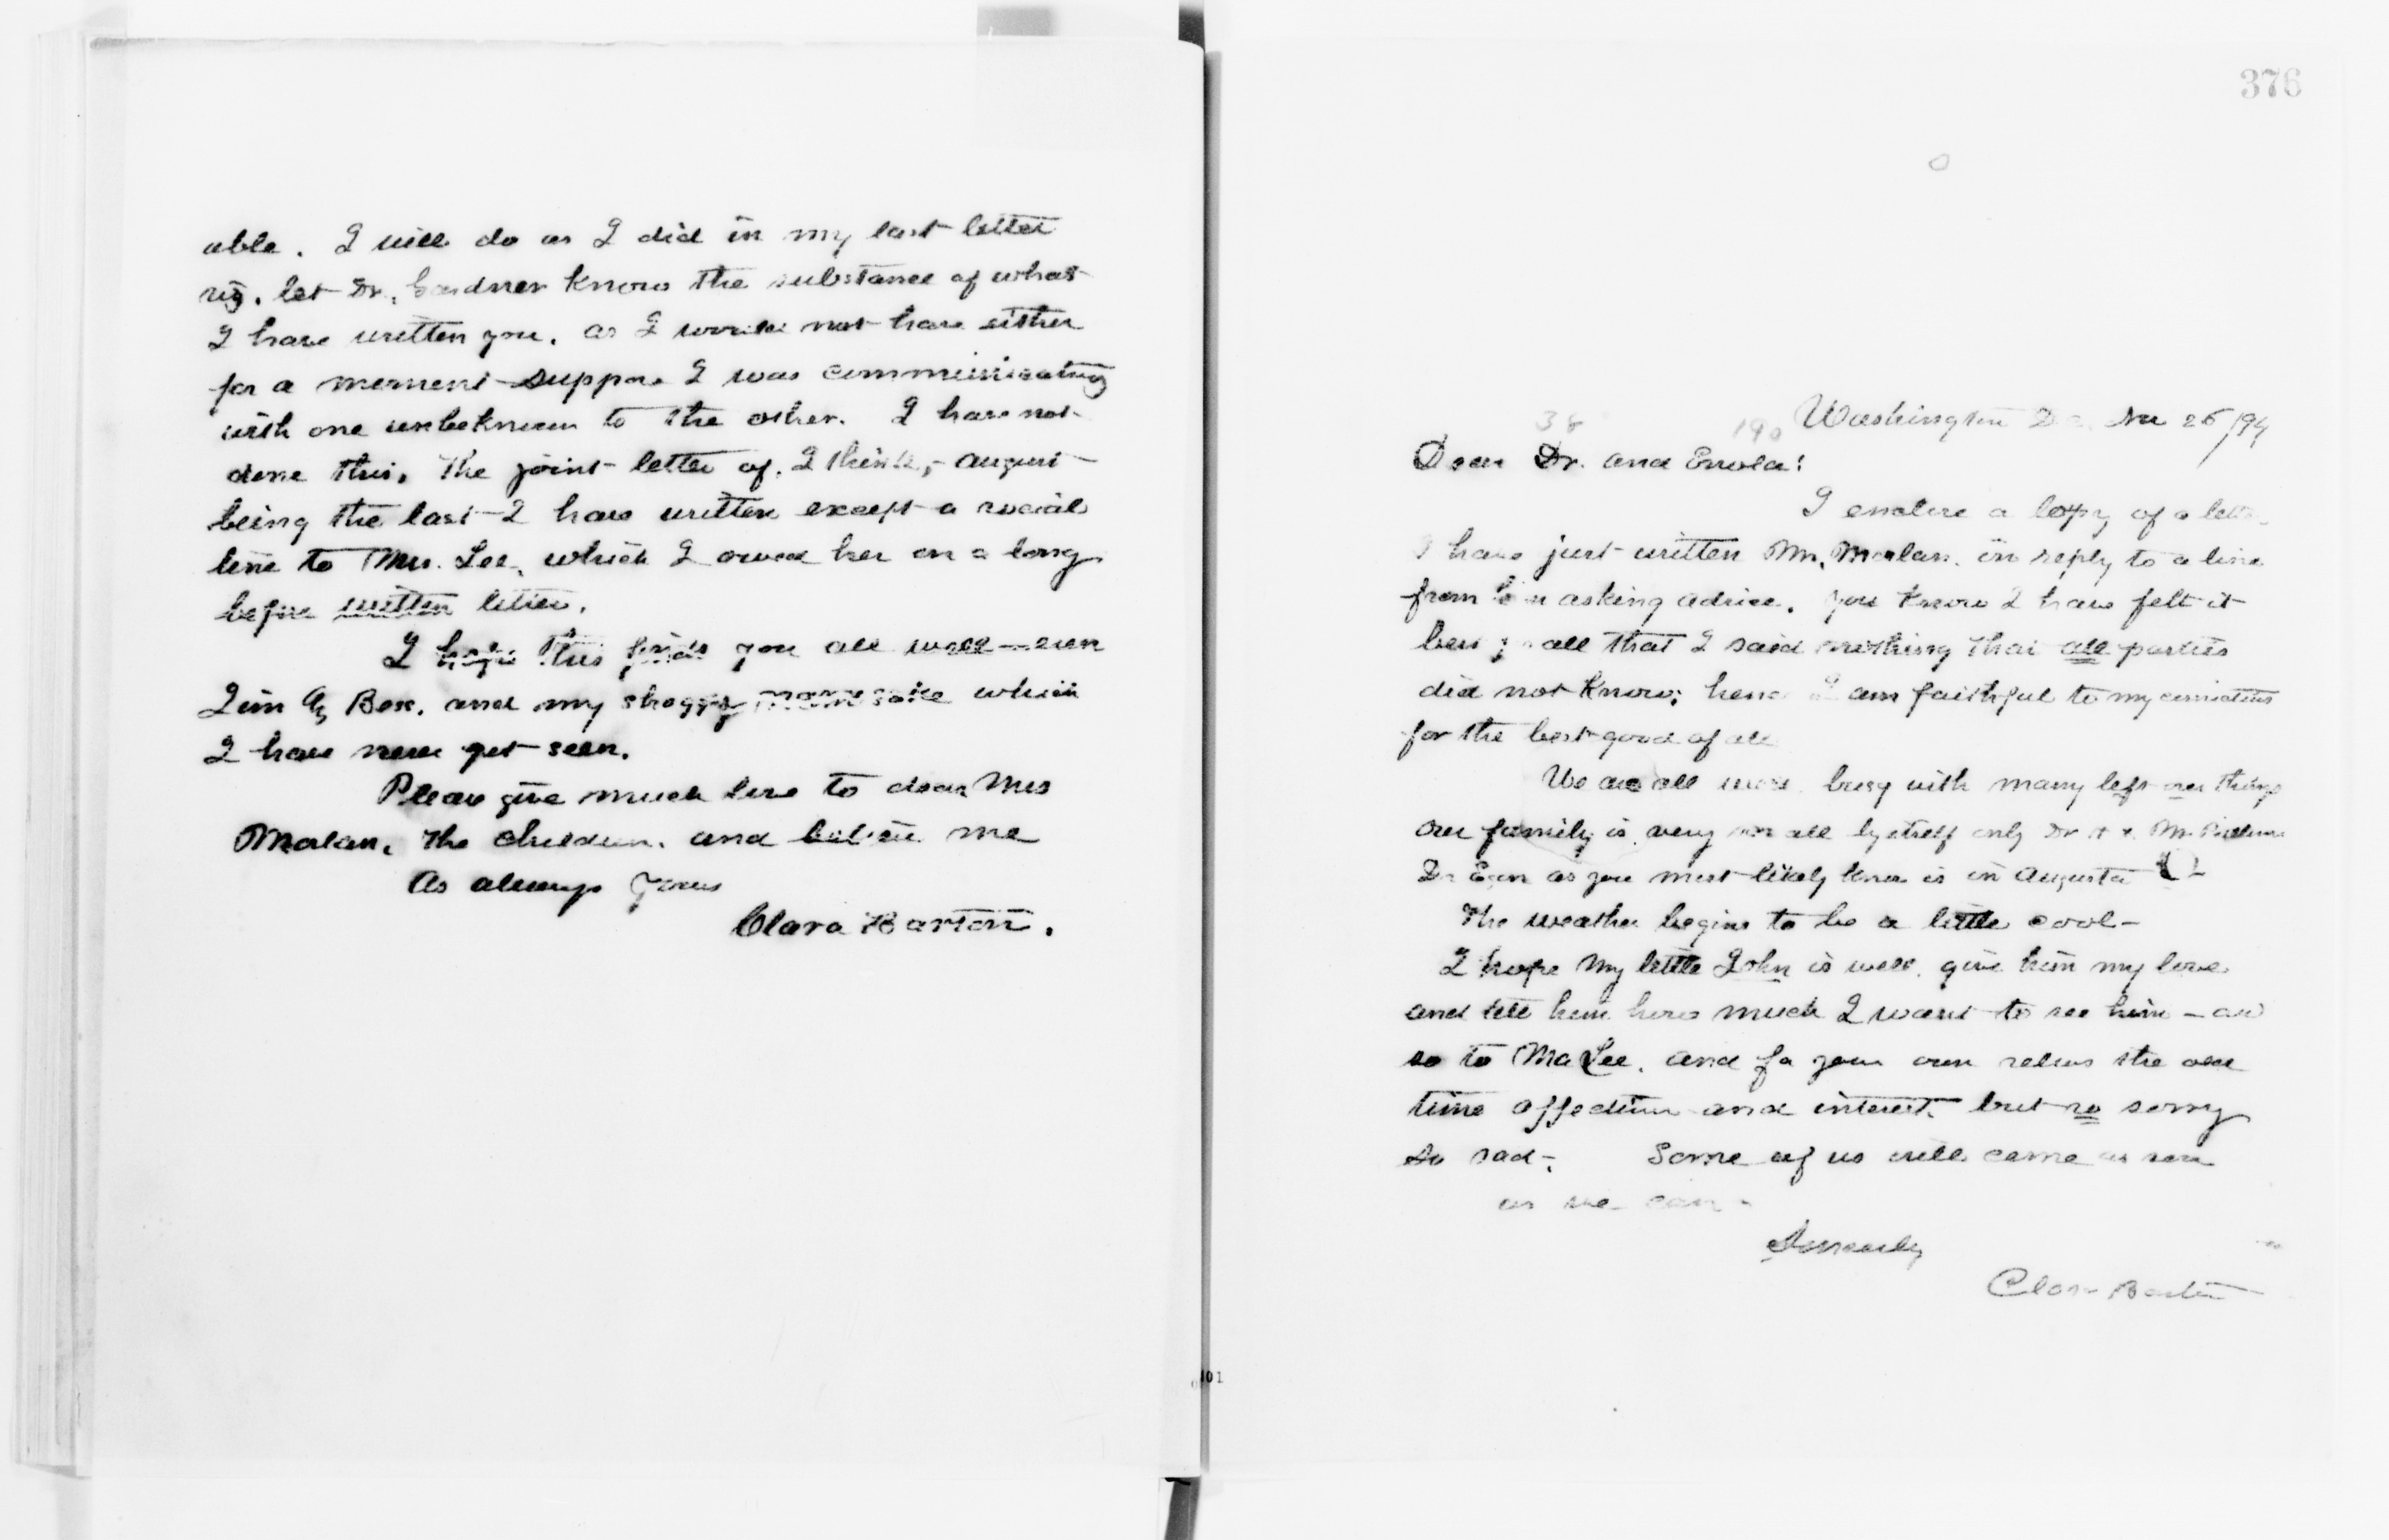 able. I will do as I did in my last letter
viz. let Dr. Gardner know the substance of what
I have written you, as I would not have either
for a moment suppose I was communicating
with one unbeknown to the other. I have not
done this. The joint letter of, I think, - August -
being the last I have written except a social
line to Mrs. Lee, which I owed her on a long
before written letter.
I hope this finds you all well - even
Jim Box, and my shaggy namesake which
I have never yet seen.
Please give much love to dear Mrs
Morlan, the children, and believe me
As always yours
Clara Barton.
376
38 190
Washington D.C. Nov 26/94
Dear Dr. and Enola!
I enclose a copy of a letter
I have just written Mr. Morlan in reply to a line
from him asking advice. You know I have felt it
best for all that I said nothing that all parties
did not know; hence I am faithful to my convictions
for the best good of all
We are all well, busy with many left over things
our family is very small by itself only Dr H & Mr. Pullman
Dr Egan as you most likely know is in Augusta
The weather begins to be a little cool -
I hope my little John is well, give him my love
and tell him how much I want to see him - and
so to Ma Lee, and for your own selves the old
time affection and interest, but so sorry
so sad -. Some of us will come as soon
as we can -
Sincerely
Clara Barton
101